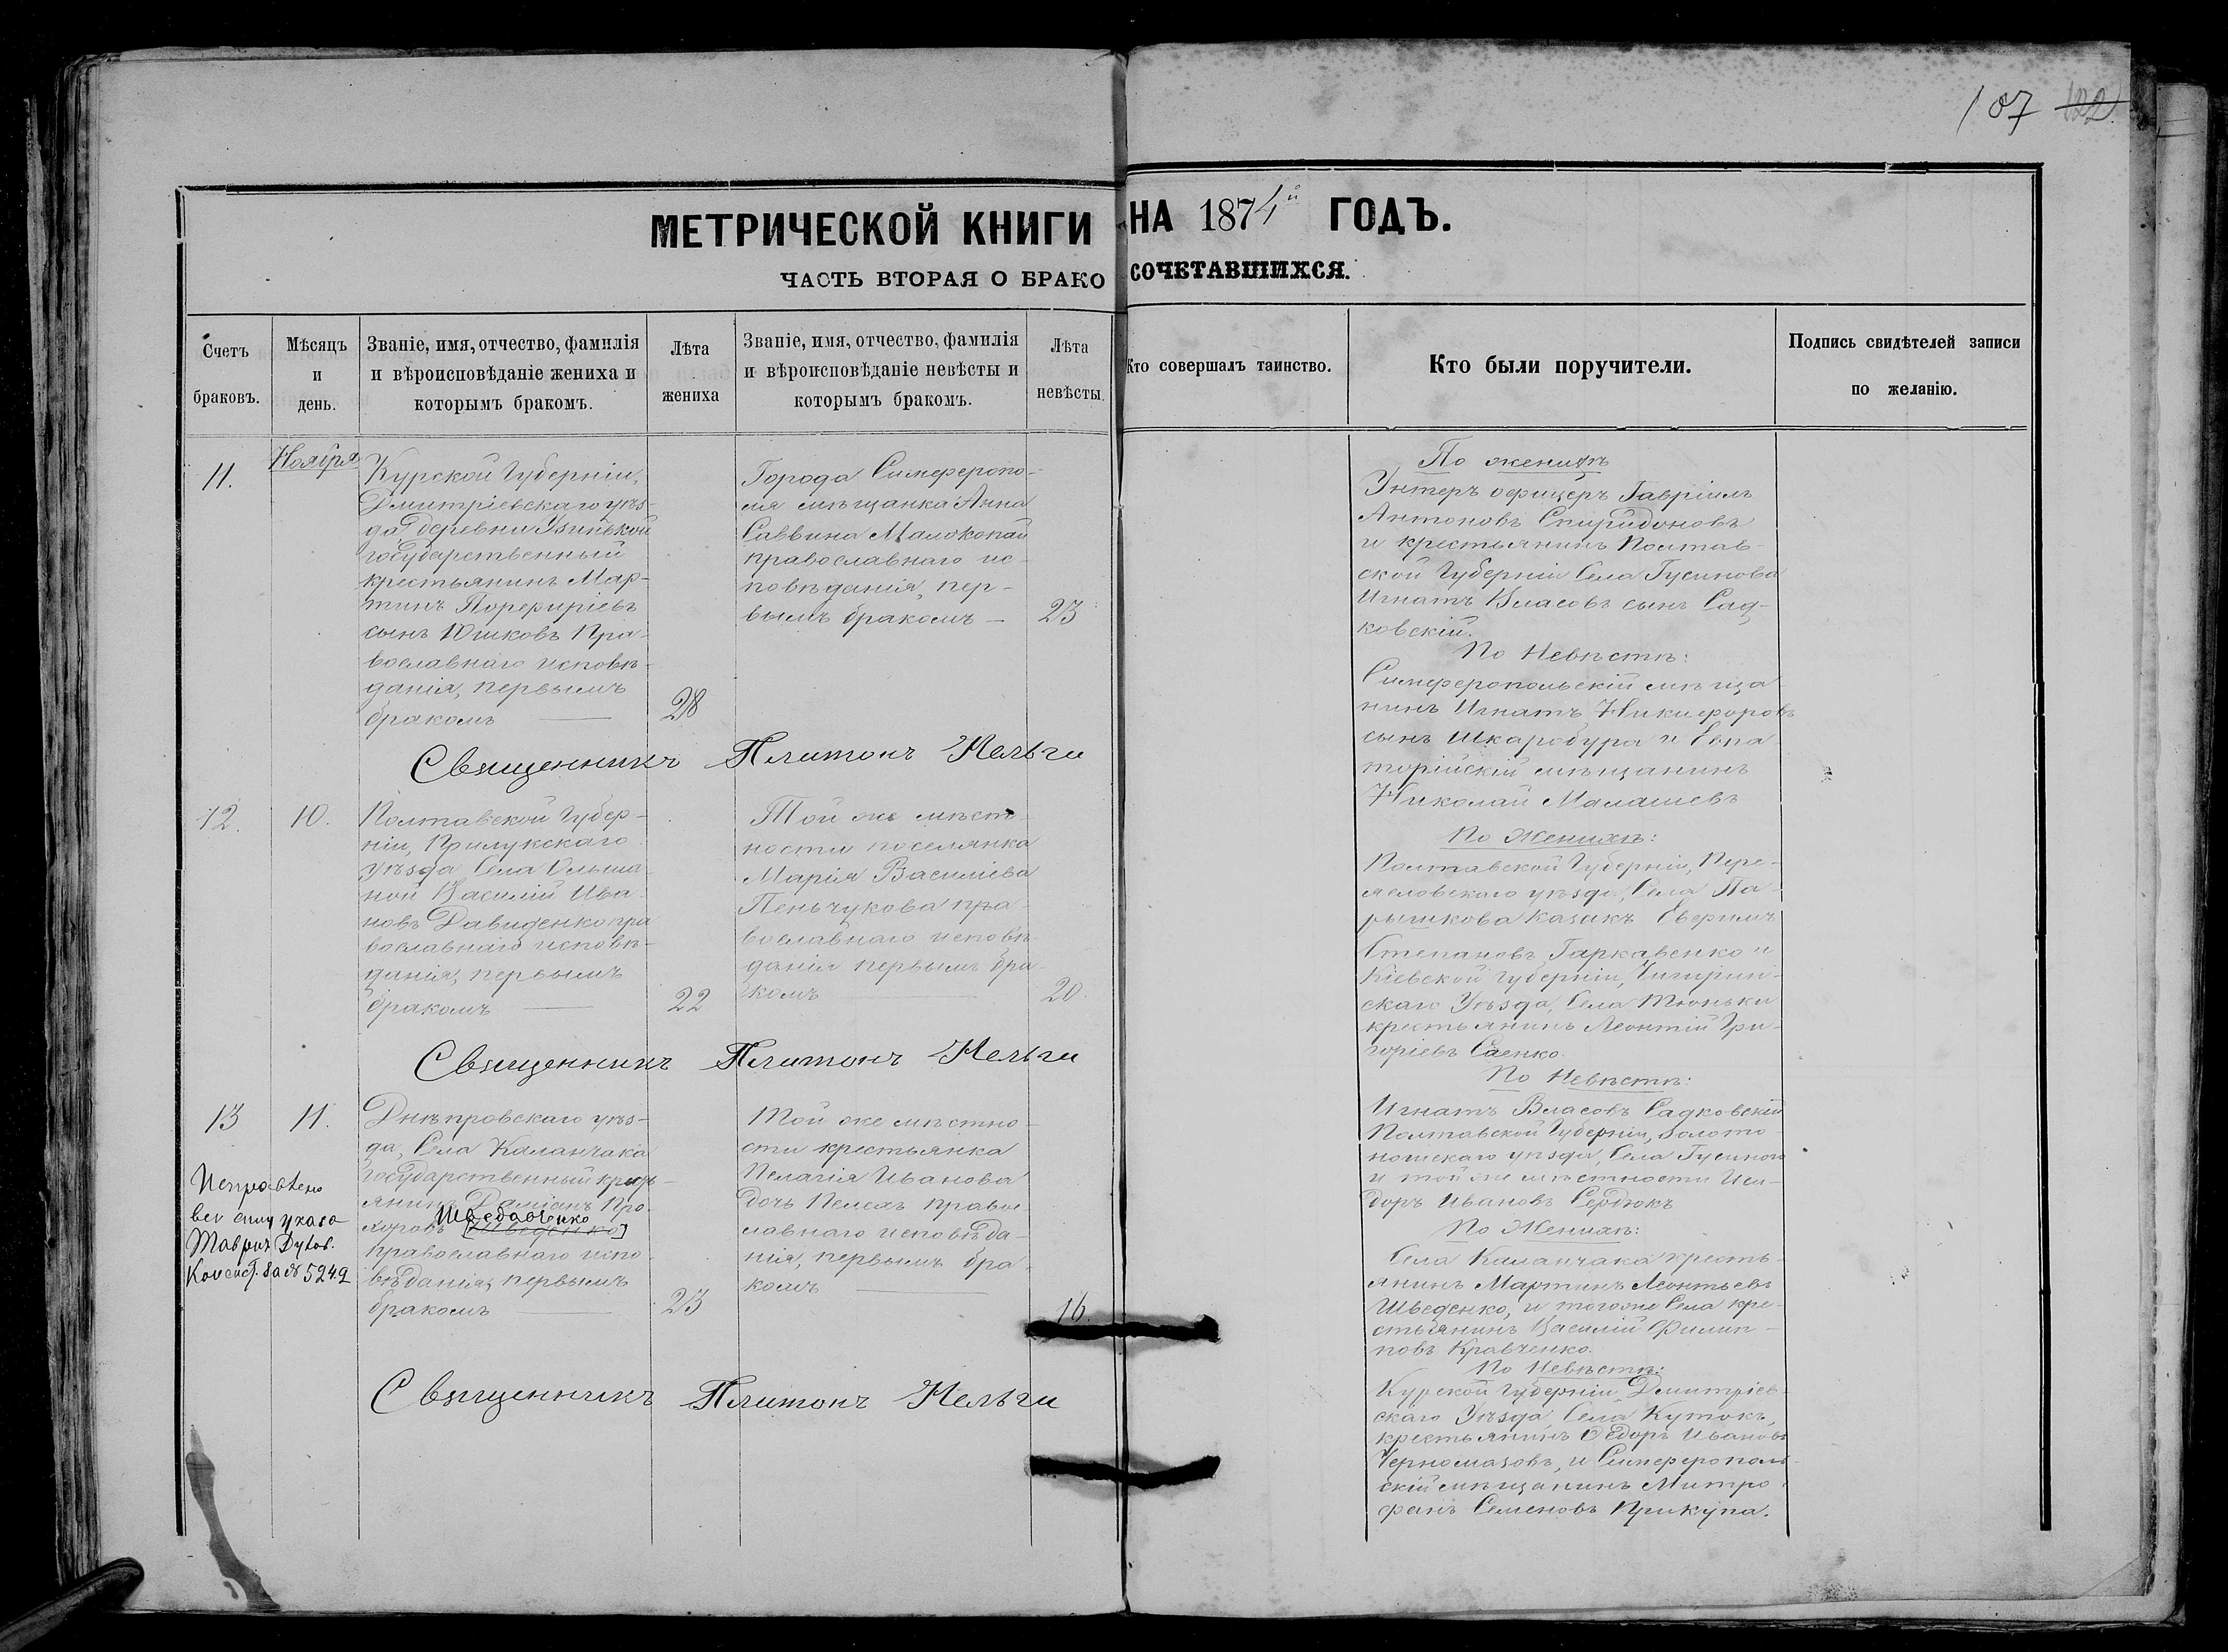 107 122
МЕТРИЧЕСКОЙ КНИГИ НА 1874й ГОДЪ.
ЧАСТЬ ВТОРАЯ О БРАКОСОЧЕТАВШИХСЯ.
Счетъ браковъ.
Мѣсяцъ и день.
Званіе, имя, отчество, фамилія
и вѣроисповѣданіе жениха и
которымъ бракомъ.
Лѣта жениха
Званіе, имя, отчество, фамилія
и вѣроисповѣданіе невѣсты и
которымъ бракомъ.
Лѣта невѣсты.
Кто совершалъ таинство.
Кто были поручители.
Подпись свидѣтелей записи
по желанію.
11.
Ноября
Курской Губерніи,
Дмитріевскаго уѣз-
да, деревни
государственный
крестьянинъ Мар-
тинъ Порфиріевъ
сынъ Юшковъ Пра-
вославнаго исповѣ-
данія, первымъ
бракомъ
28
Города Симферопо-
ля мѣщанка Анна
Саввина Малокопай
православнаго ис-
повѣданія, пер-
вымъ бракомъ —
23
Священникъ Платонъ
По женихѣ
Унтеръ офицеръ Гавріилъ
Антоновъ Спиридоновъ
и крестьянинъ Полтав-
ской Губерніи Села Гусинова
Игнатъ Власовъ сынъ Сад-
ковскій.
По Невѣстѣ:
Симферопольскій мѣща
нинъ Игнатъ Никифоровъ
сынъ Шкаробура и Евпа
торійскій мѣщанинъ
Николай Малашевъ
12.
10.
Полтавской Губер-
ніи, Прилукскаго
уѣзда Села Ольша
ной Василій Ива
новъ Давиденко пра
вославнаго исповѣ-
данія, первымъ
бракомъ
22
Той же мѣст
ности поселянка
Марія Василіева
Пеньчукова пра-
вославнаго исповѣ
данія первымъ бра-
комъ
20.
Священникъ Платонъ
По Женихѣ:
Полтавской Губерніи, Пере-
яславскаго уѣзда, Села Па
рышкова казакъ
Степановъ Гаркавенко и
Кіевской Губерніи, Чигирин-
скаго Уѣзда, Села Тюньки
крестьянинъ Леонтій Гри-
горіевъ Саенко.
По Невѣстѣ:
Игнатъ Власовъ Садковскій
Полтавской Губерніи, Золото-
ношскаго уѣзда, Села Гусиного
и той же мѣстности Иси-
доръ Ивановъ Сердюкъ
13
11.
Днѣпровскаго уѣз-
да, Села Каланчака
Государственный кресть-
янинъ Даміанъ Про-
хоровъ [Шведенко]
православнаго испо-
вѣданія, первымъ
бракомъ
23
Исправлено
указа
Таврич. Духов.
Консист. за № 5249
Той же мѣстно-
сти крестьянка
Пелагія Иванова
дочь Пелехъ право-
славнаго исповѣда-
нія, первымъ бра-
комъ
16.
Священникъ Платонъ
По Женихѣ:
Села Каланчака кресть-
янинъ Мартинъ Леонтьевъ
Шведенко, и того же Села кре-
стьянинъ Василій Филип-
повъ Кравченко.
По Невѣстѣ:
Курской Губерніи Дмитріев-
скаго Уѣзда, Села Кутокъ,
крестьянинъ Ѳедоръ Ивановъ
Черномазовъ, и Симферополь-
скій мѣщанинъ Митро-
фанъ Семеновъ Прикупа.